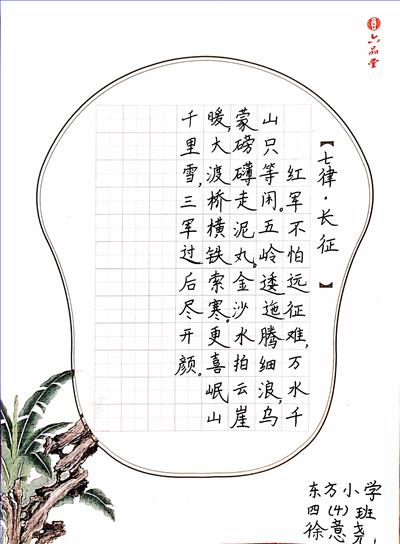 六品堂
【七律·长征】
红军不怕远征难,万水千
山只等闲。五岭逶迤腾细浪,乌
蒙磅礴走泥丸。金沙水拍云崖
暖,大渡桥横铁索寒。更喜岷山
千里雪,三军过后尽开颜。
东方小学
四(4)班
徐意尧